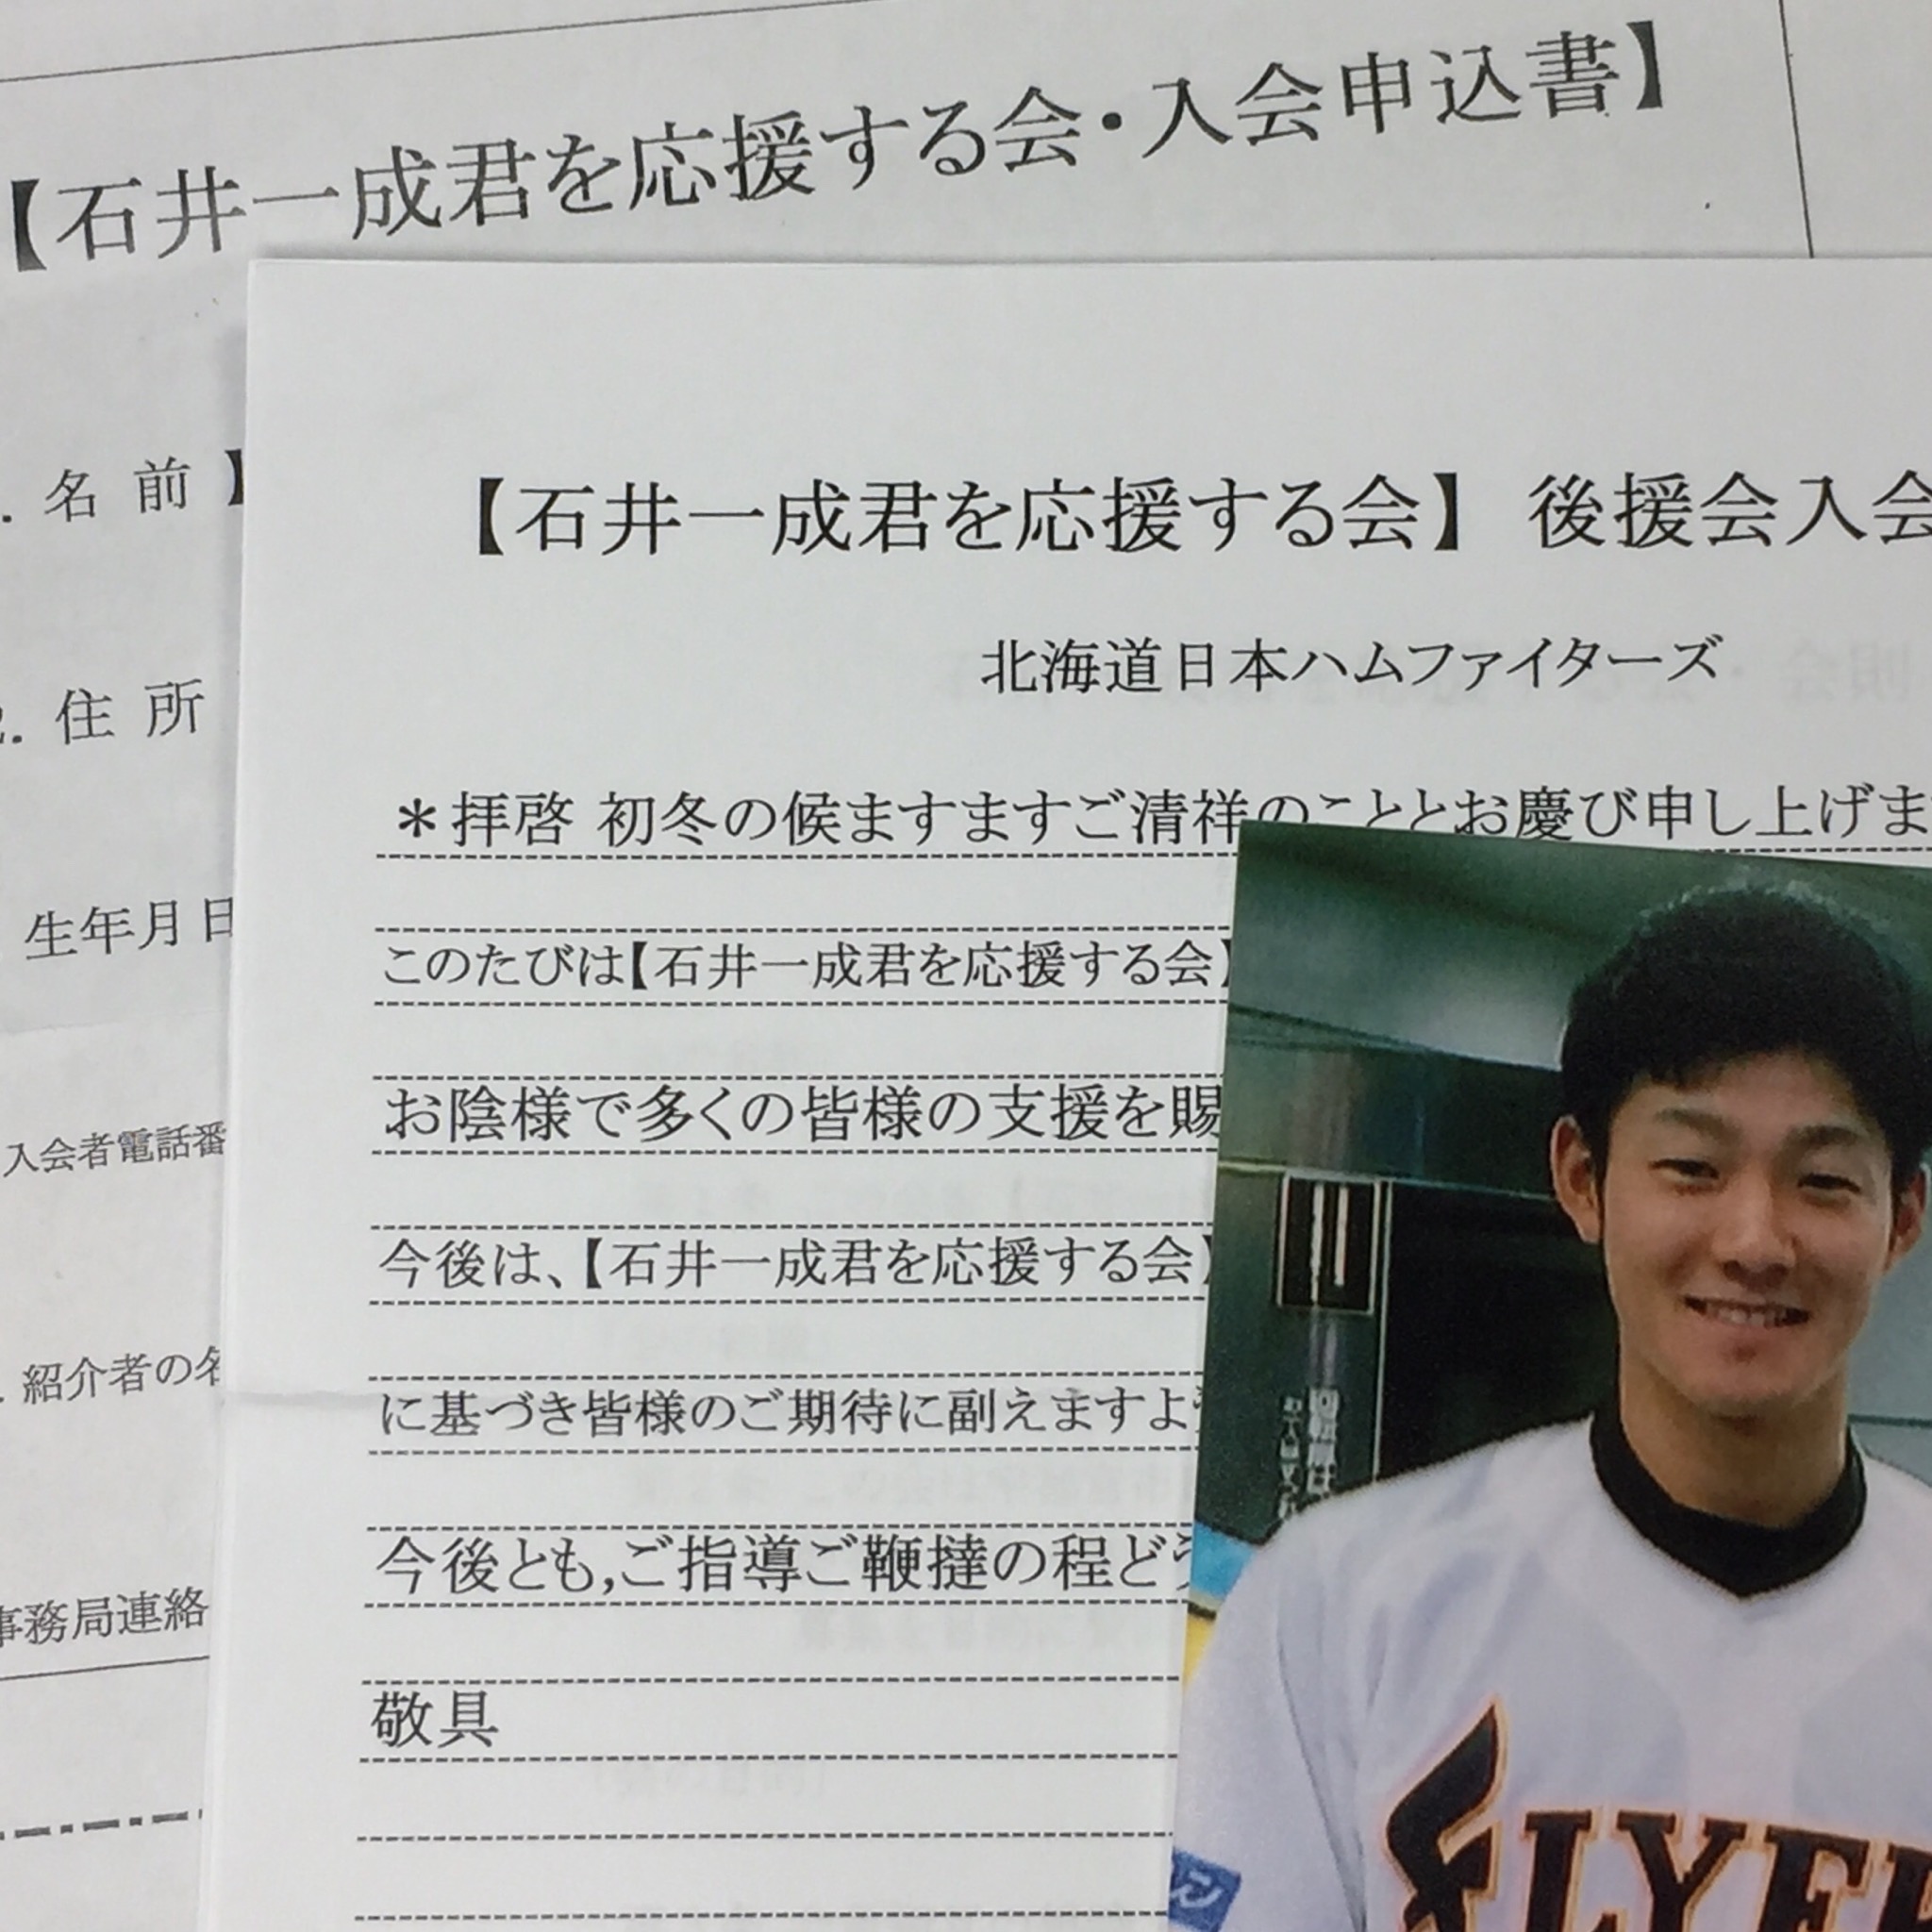 【石井一成君を応援する会・入会申込書】
名 前 】
住 所
生年月日
入会者電話番
紹介者の名
事務局連絡
【石井一成君を応援する会】 後援会入会
北海道日本ハムファイターズ
＊拝啓 初冬の候ますますご清祥のこととお慶び申し上げま
このたびは【石井一成君を応援する会】
お陰様で多くの皆様の支援を賜
今後は、【石井一成君を応援する会】
に基づき皆様のご期待に副えますよう
今後とも,ご指導ご鞭撻の程どう
敬具
FLYER